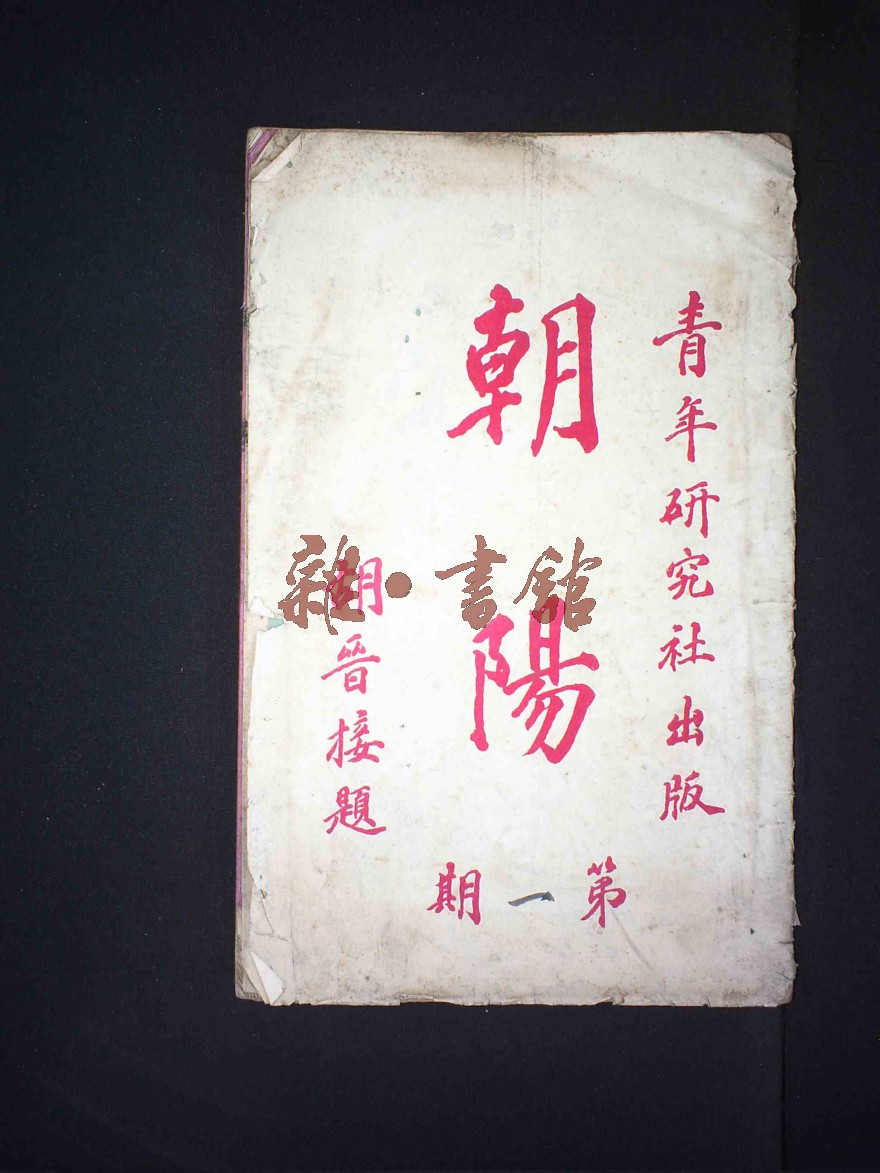 青年研究社出版
朝陽
胡晉接題
第一期
雜·書館